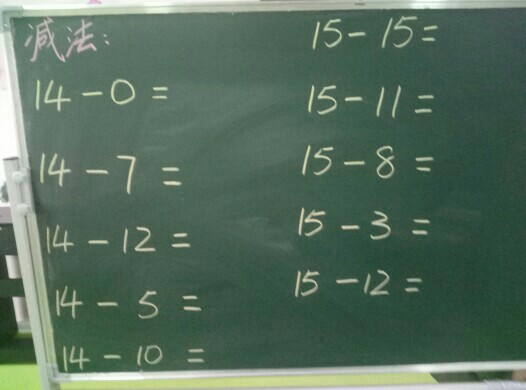 减法:
14-0=
14-7=
14-12=
14-5=
14-10=
15-15=
15-11=
15-8=
15-3=
15-12=